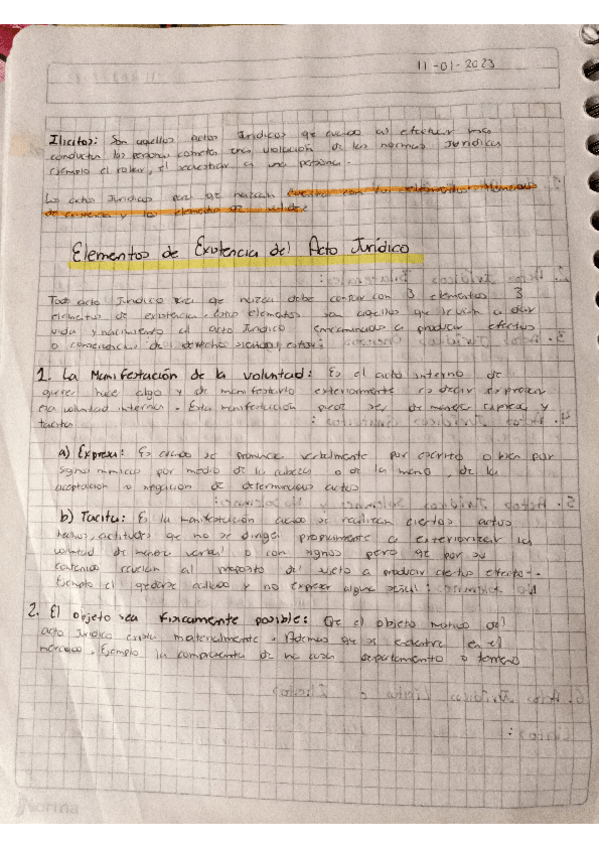 11-01-2023
Ilicitos: Son aquellos Actos Juridicos que cuando al efectuar una
conducta las personas cometen una violación de las normas Jurídicas
ejemplo el robar, el secuestrar a una persona.
Los actos Juridicos para que nazcan cuentan con los elementos
de existencia y los elementos de validez
Elementos de Existencia del Acto Jurídico
Todo acto Juridico para que nazca debe contar con 3 elementos 3
elementos de existencia, estos elementos son aquellos que le van a dar
vida y nacimiento al acto Juridico encaminados a producir efectos
o consecuencias de derecho
1. La Manifestación de la voluntad: Es el acto interno de
querer hacer algo y de manifestarlo exteriormente es decir expresar
esa voluntad interna. Esta manifestación puede ser de manera expresa y
tacita
a) Expresa: Es cuando se pronuncia verbalmente por escrito o bien por
signos mimicos por medio de la cabeza o de la mano, de la
aceptación o negación de determinados actos
b) Tacita: Es la manifestación cuando se realizan ciertos actos
hechos, actitudes que no se dirigen propiamente a exteriorizar la
voluntad de manera verbal o con signos pero que por su
contenido revelan al proposito del sujeto a producir ciertos efectos.
Ejemplo el quedarse callado y no expresar alguna señal
2. El objeto sea Fisicamente posible: Que el objeto motivo del
acto Juridico exista materialmente. Además que se encuentre en el
mercado. Ejemplo la compraventa de una casa departamento o terreno
Norma